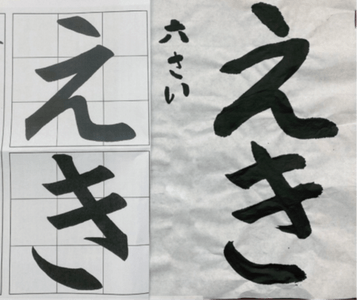 えき
六さい
えき